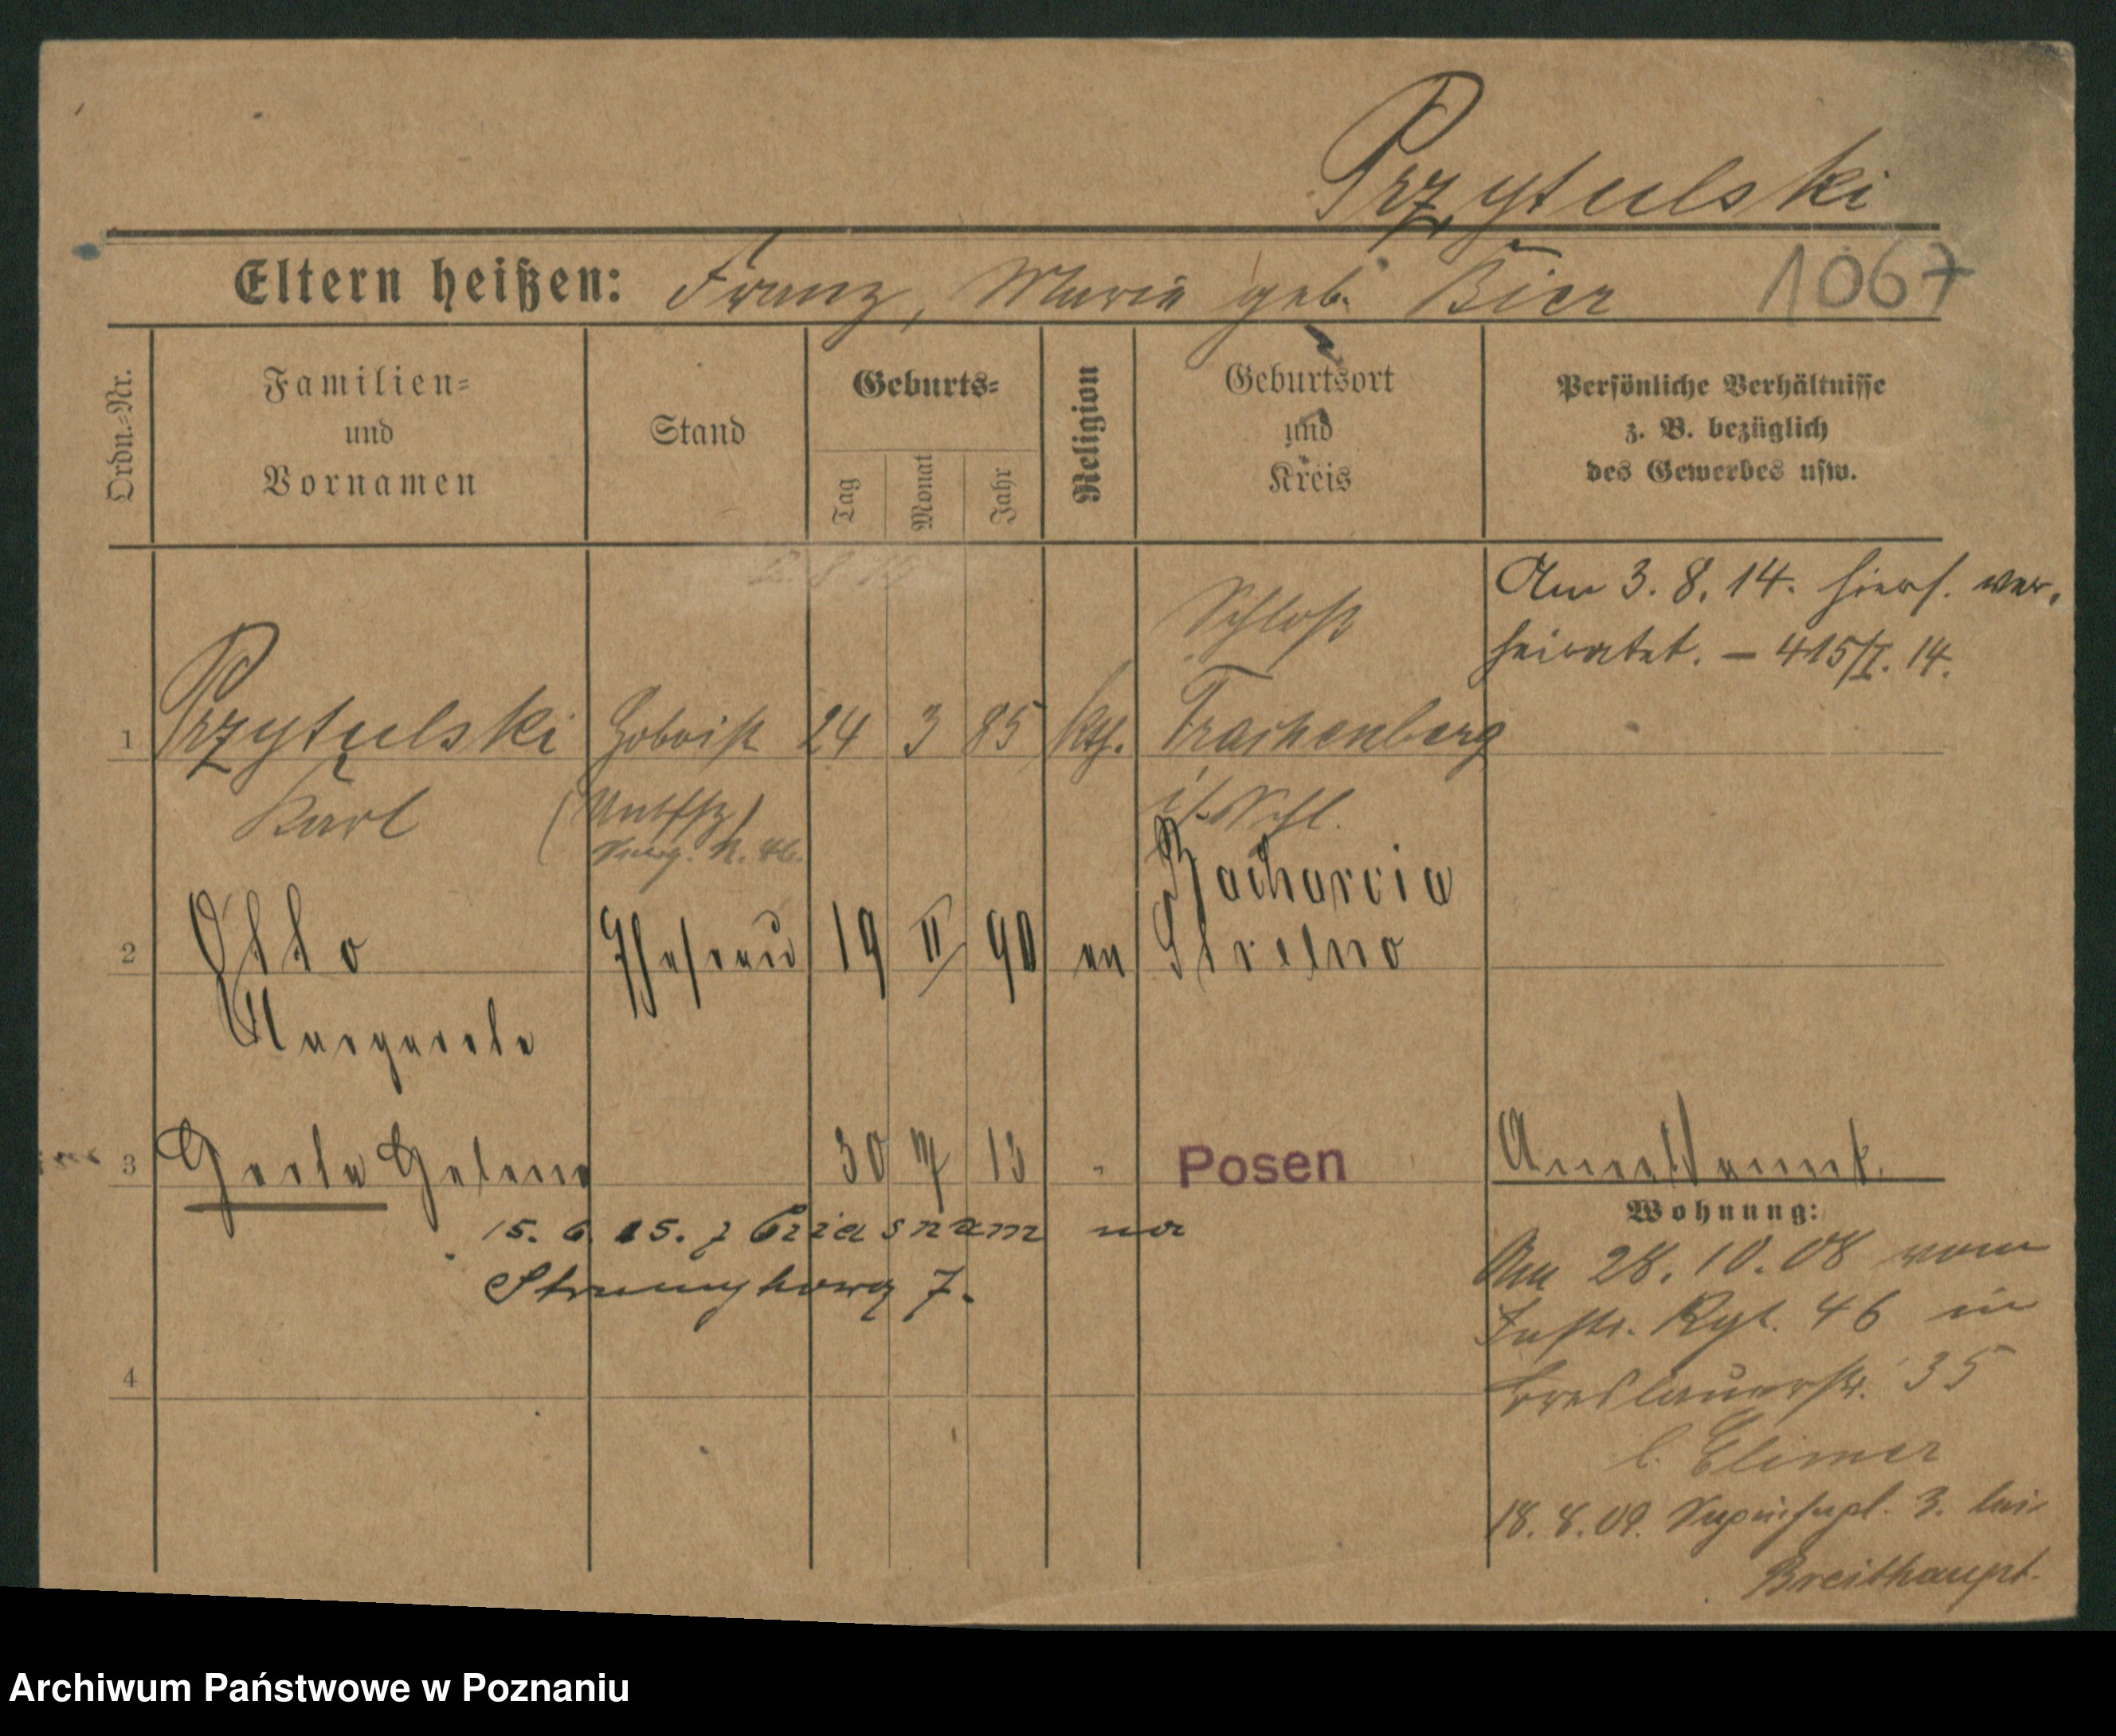 Przytulski
Eltern heißen: Franz, Marie geb. Bier 1067
Ordn.-Nr.
Familien-
und
Vornamen
Stand
Geburts-
Tag
Monat
Jahr
Religion
Geburtsort
und
Kreis
Persönliche Verhältnisse
z. B. bezüglich
des Gewerbes usw.
Am 3. 8. 14. hiers. ver-
heiratet. — 415/I. 14.
Schloß
1 Przytulski Hoboist 24 3 85 kth. Trachenberg
Karl (Untffz)
i/Schl.
2 Otto Ehefrau 19 II 90 ev Strelno
Margarete
3 Gerta Helene 30 13 " Posen
15. 6. 15.
7.
4
Wohnung:
Am 28. 10. 08 vom
Inftr. Rgt. 46 in
Breslauerstr. 35
b. Elimer
18. 8. 09. 3. bei
Breithaupt.
Archiwum Państwowe w Poznaniu